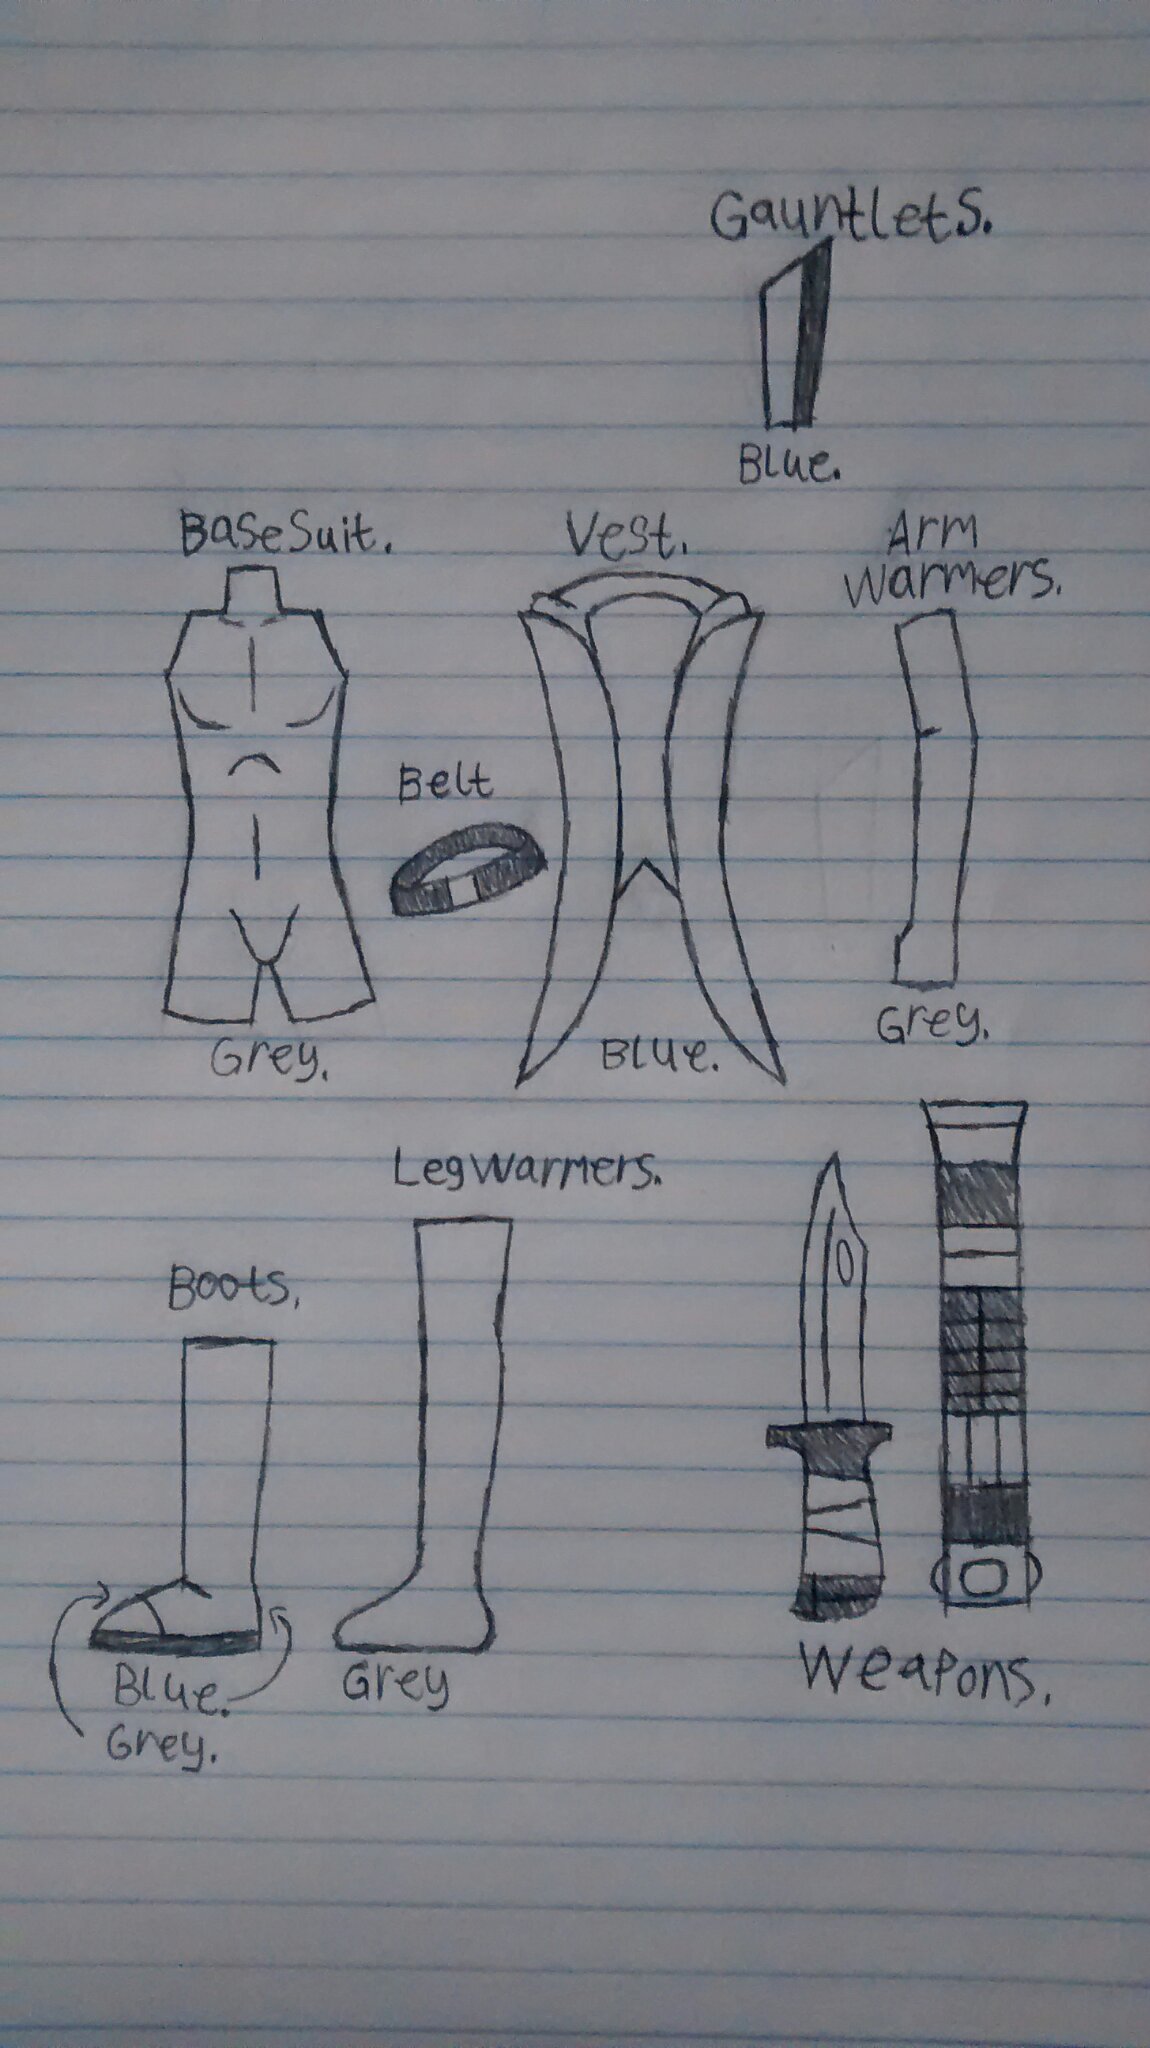 Gauntlets.
Blue.
Base Suit.
Vest.
Arm
Warmers.
Belt
Grey.
Blue.
Grey.
Leg Warmers.
Boots.
Blue.
Grey.
Grey
Weapons.